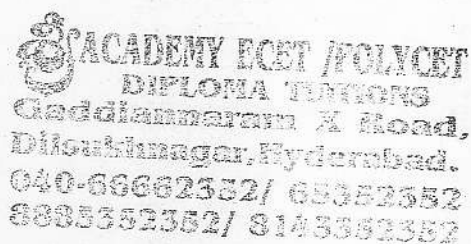 శ్రీ ACADEMY ECET /POLYCET
DIPLOMA TUITIONS
Gaddiannaram X Road,
Dilsukhnagar, Hyderabad.
040-66662352/ 65352352
8885352352/ 8143352352